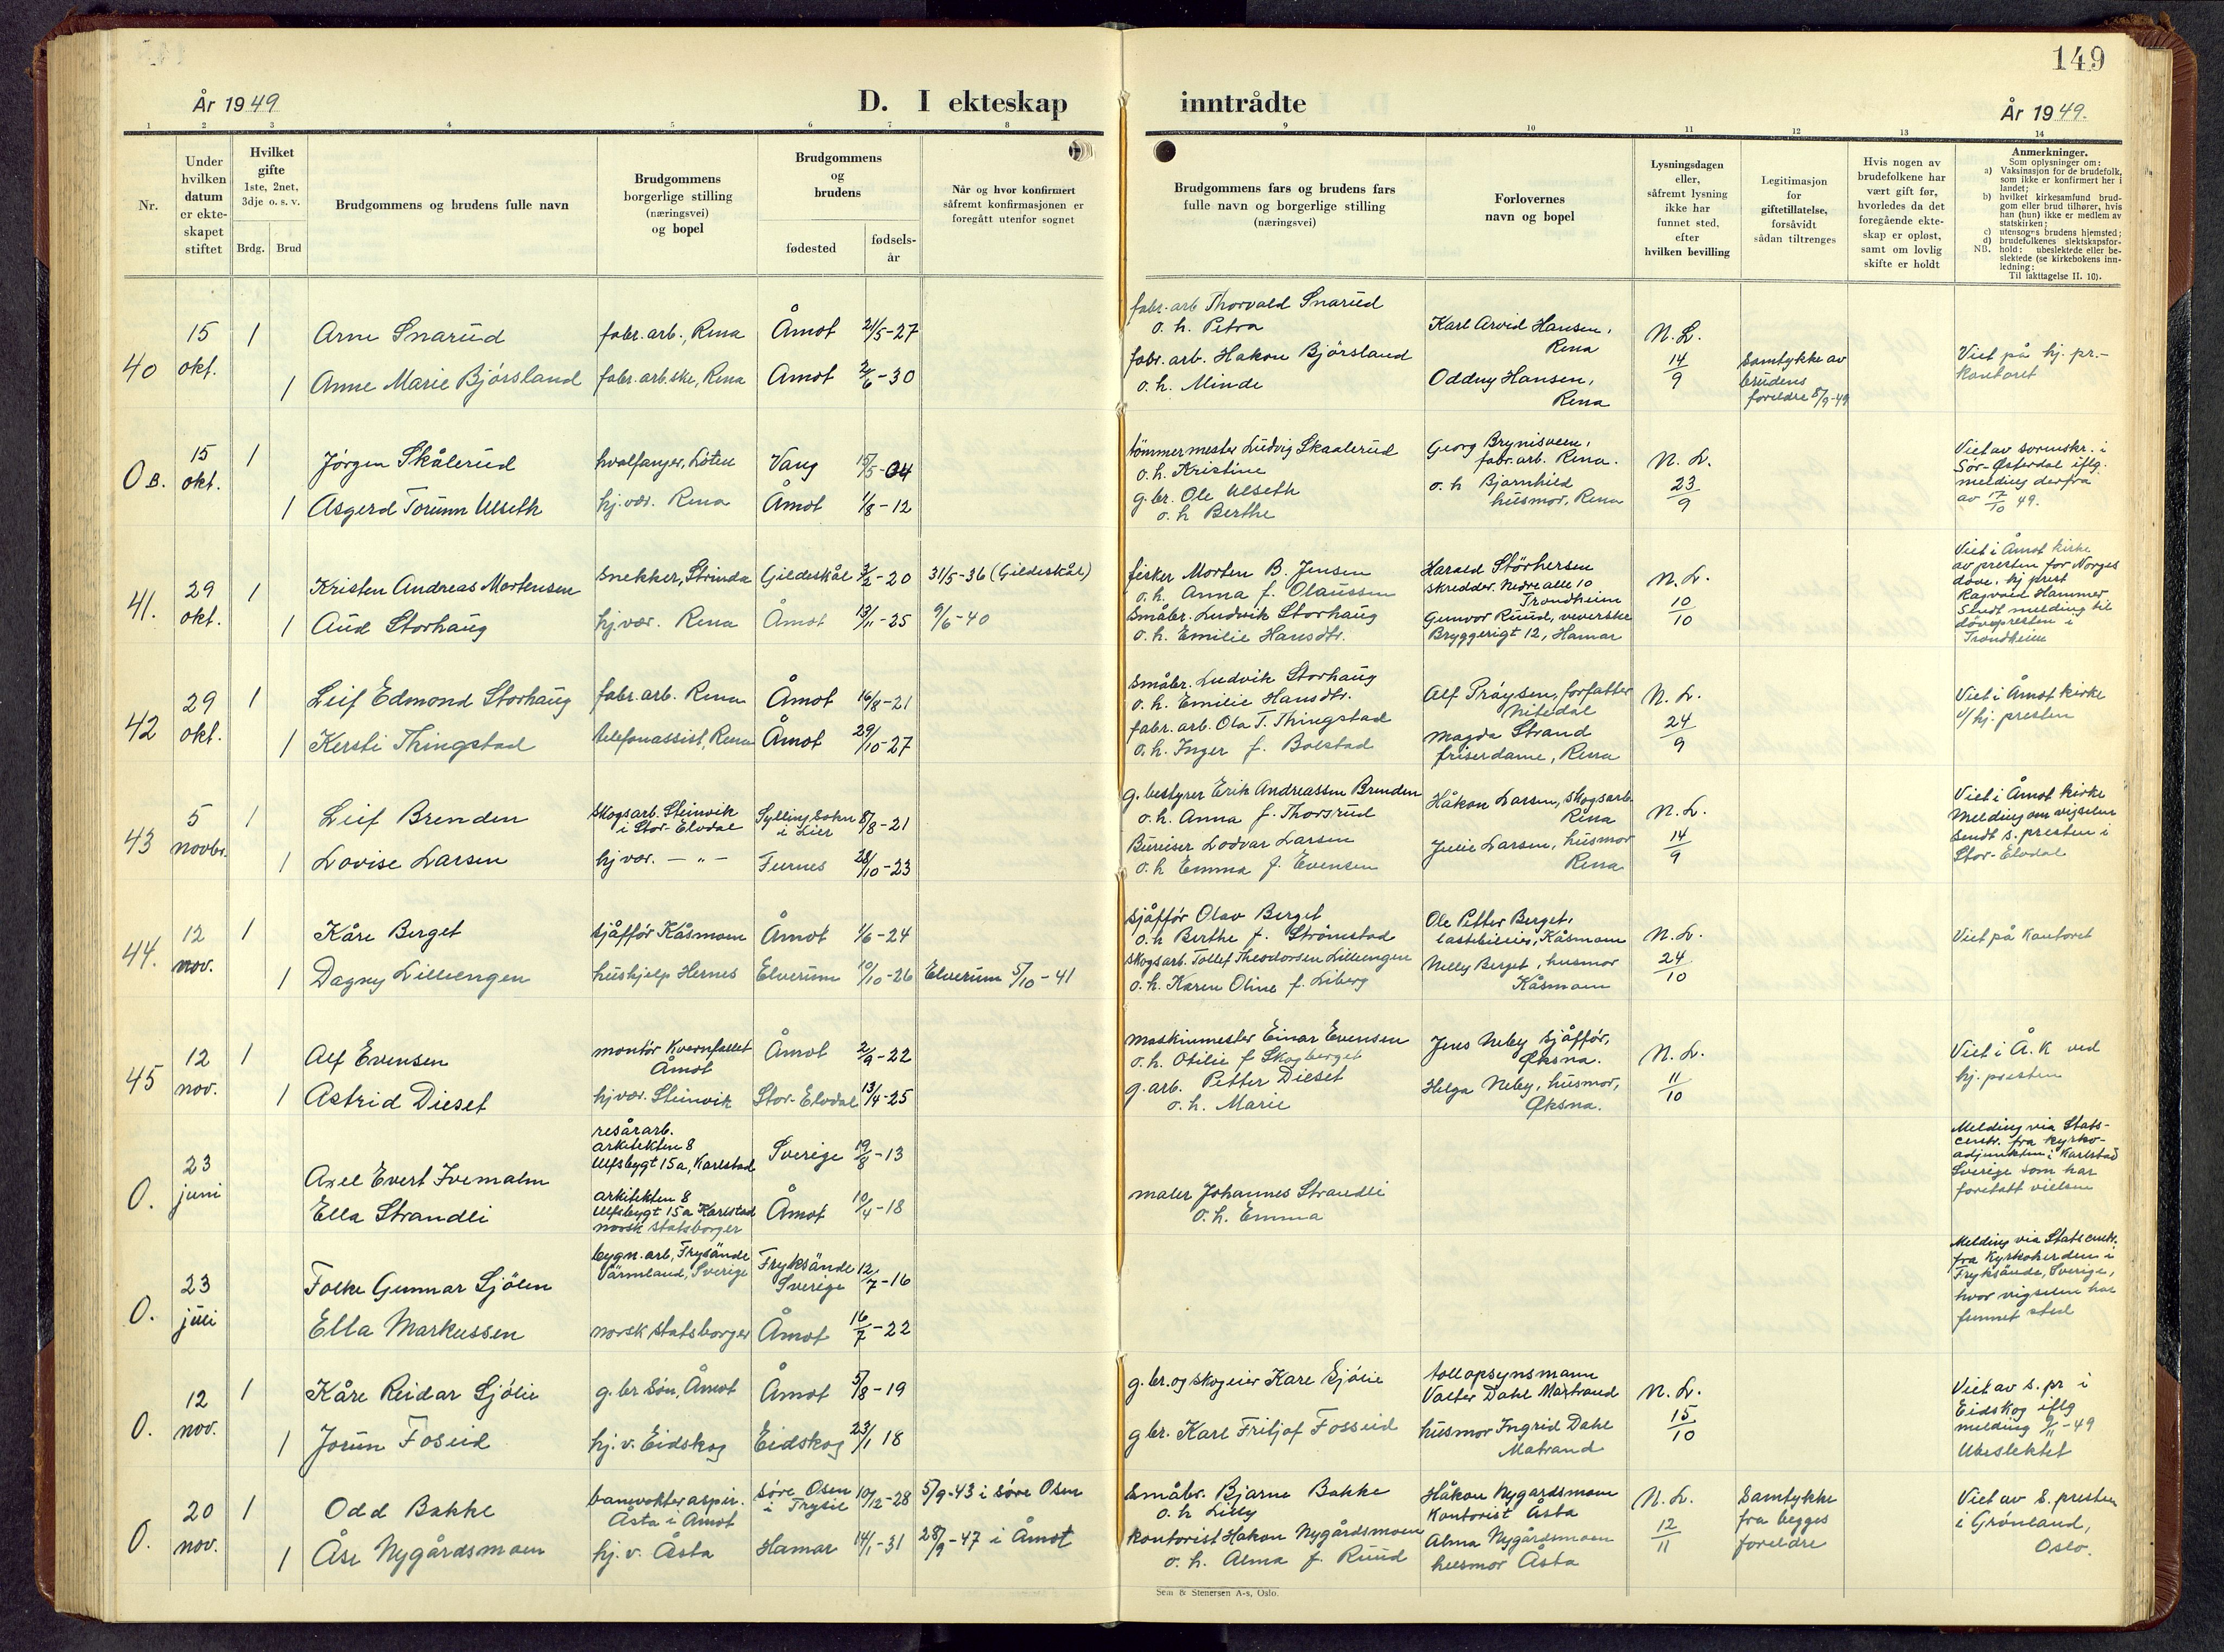 149
År 1949
D. I ekteskap inntrådte
År 1949.
1 2 3 4 5 6 7 8 9 10 11 12 13 14
Nr.
Under
hvilken
datum
er ekte-
skapet
stiftet
Hvilket
gifte
1ste, 2net,
3dje o. s. v.
Brdg. Brud
Brudgommens og brudens fulle navn
Brudgommens
borgerlige stilling
(næringsvei)
og bopel
Brudgommens
og
brudens
fødested
fødsels-
år
Når og hvor konfirmert
såfremt konfirmasjonen er
foregått utenfor sognet
Brudgommens fars og brudens fars
fulle navn og borgerlige stilling
(næringsvei)
Forlovernes
navn og bopel
Lysningsdagen
eller,
såfremt lysning
ikke har
funnet sted,
efter
hvilken bevilling
Legitimasjon
for
giftetillatelse,
forsåvidt
sådan tiltrenges
Hvis nogen av
brudefolkene har
vært gift før,
hvorledes da det
foregående ekte-
skap er opløst,
samt om lovlig
skifte er holdt
Anmerkninger.
Som oplysninger om:
a) Vaksinasjon for de brudefolk,
som ikke er konfirmert her i
landet;
b) hvilket kirkesamfund brud-
gom eller brud tilhører, hvis
han (hun) ikke er medlem av
statskirken;
c) utensogns brudens hjemsted;
d) brudefolkenes slektskapsfor-
hold: ubeslektede eller be-
slektede (se kirkebokens inn-
ledning:
NB.
Til iakttagelse II. 10).
40
15
okt.
1
Arne Snarud
fabr. arb., Rena
Åmot
21/5-27
1
Anne Marie Bjørsland
fabr. arb.ske, Rena
Åmot
2/6-30
fabr.-arb Thorvald Snarud
o. h. Petra
fabr. arb. Hakon Bjørsland
o. h. Minde
Karl Arvid Hansen,
Rena
Oddny Hansen,
Rena
N. L.
14/9
Samtykke av
brudens
foreldre 8/9-49
Viet på hj. pr.-
kontoret
O B.
15
okt.
1
Jørgen Skålerud
hvalfanger, Løten
Vang
15/5-04
1
Asgerd Torunn Ulseth
hj. vær. Rena
Åmot
1/8-12
tömmermester Ludvig Skaalerud
o. h. Kristine
g. br. Ole Ulseth
o. h Berthe
Georg Brynisveen,
fabr. arb. Rena.
o. h Bjarnhild
husmor, Rena
N. L.
23/9
Viet av sorenskr. i
Sør-Østerdal iflg.
melding derfra
av 17/10 49.
41.
29
okt.
1
Kristen Andreas Mortensen
Snekker, Strinda
Gildeskål
3/2-20
31/5-36 (Gildeskål)
1
Aud Storhaug
hj. vær. Rena
Åmot
13/11-25
9/6-40
fisker Morten B. Jensen
o. h. Anna f. Olaussen
Småbr. Ludvik Storhaug
o. h. Emilie Hansdtr.
Harald Störhersen
skredder. Nedre alle 10
Trondheim
Gunvor Ruud, veverske
Bryggerigt 12, Hamar
N. L.
10/10
Viet i Åmot kirke
av presten for Norges
døve, hj prest
Ragvald Hammer
Sendt melding til
døvepresten i
Trondheim
42
29
okt.
1
Leif Edmond Storhaug
fabr. arb. Rena
Åmot
16/8-21
1
Kersti Thingstad
telefonassist, Rena
Åmot
29/10-27
Småbr. Ludvik Storhaug
o. h. Emilie Hansdtr.
fabr. arb. Ola T. Thingstad
o. h. Inger f. Bolstad
Alf Prøysen, forfatter
Nitedal
Magda Strand
friserdame, Rena
N. L.
24/9
Viet i Åmot kirke
v/ hj. presten
43
5
novbr.
1
Leif Brenden
Skogsarb. Steinvik
i Stor-Elvdal
Syllingbohn
i Lier
8/8-21
1
Lovise Larsen
hj vær. - " -
Furnes
28/10-23
g. bestyrer Erik Andreassen Brenden
o. h. Anna f. Thorsrud
Bureiser Lodvar Larsen
o. h Emma f. Evensen
Håkon Larsen, skogsarb.
Rena
Julie Larsen, husmor
Rena
N. L.
14/9
Viet i Åmot kirke
Melding om vigselen
sendt s. presten i
Stor-Elvdal
44.
12
nov.
1
Kåre Berget
sjåfför Kåsmoen
Åmot
1/6-24
1
Dagny Lillengen
hushjelp Hernes
Elverum
10/10-26
Elverum 5/10-41
Sjåfför Olav Berget
o. h Berthe f. Strömstad
Skogsarb. Tollef Theodorsen Lillengen
o. h. Karen Oline f. Liberg
Ole Petter Berget,
lastebileier, Kåsmoen
Nelly Berget, husmor
Kåsmoen
N. L.
24/10
Viet på kontoret
45
12
nov.
1
Alf Evensen
montör Kvernfallet
Åmot
Åmot
2/9-22
1
Astrid Dieset
hj vær. Steinvik
Stor-Elvdal
13/4-25
Maskinmester Einar Evensen
o. h. Otilie f Skogberget
g. arb. Petter Dieset
o. h. Marie
Jens Neby sjåffør,
Øksna.
Helga Neby, husmor,
Øksna.
N. L.
11/10
Viet i Å. K ved
hj. presten
O.
23
juni
Axel Evert Ivemalm
resårarb.
arkitekten 8
Ulfsbygt 15a, Karlstad
Sverige
19/8-13
Ella Strandli
arkitekten 8
Ulfsbygt 15a Karlstad
norsk statsborger
Åmot
10/4-18
maler Johannes Strandli
o. h. Emma
Melding via Stats-
centr. fra kyrko-
adjunkten i Karlstad
Sverige som har
foretatt vielsen
O.
23
juli
Folke Gunnar Sjölén
bygn. arb, Frysände
Värmland, Sverige
Fryksände
Sverige
12/7-16
Ella Markussen
norsk statsborger
Åmot
16/7-22
Melding via Statscentr.
fra kyrkoherden i
Fryksände, Sverige,
hvor vigselen har
funnet sted
O.
12
nov.
1
Kåre Reidar Sjølie
g. br sön, Åmot
Åmot
5/8-19
1
Jorun Foseid
hj. v. Eidskog
Eidskog
23/1 18
g. br. og skogeier Kare Sjølie
g br. Karl Fritjof Fosseid
tollopsynsmann
Valter Dahl Matrand
husmor Ingrid Dahl
Matrand
N. L.
15/10
Viet av s. pr i
Eidskog iflg
melding 9/11-49
Ubeslektet
O.
20
nov.
1
Odd Bakke
banevokteraspir.
Åsta i Åmot
Søre Osen
i Trysil
10/12-28
5/9-43 i søre Osen
1
Åse Nygårdsmoen
hj. v. Åsta
Hamar
14/1-31
28/9-47 i Åmot
Småbr. Bjarne Bakke
o. h Lilly
Kontorist Hakon Nygårdsmoen
o. h. Alma f. Ruud
Håkon Nygardsmoen
Kontorist Åsta
Alma Nygårdsmoen
husmor Åsta
N. L.
12/11
Samtykke
fra begges
foreldre
Viet av s. presten
i Grönland,
Oslo.
Sem & Stenersen A-s, Oslo.